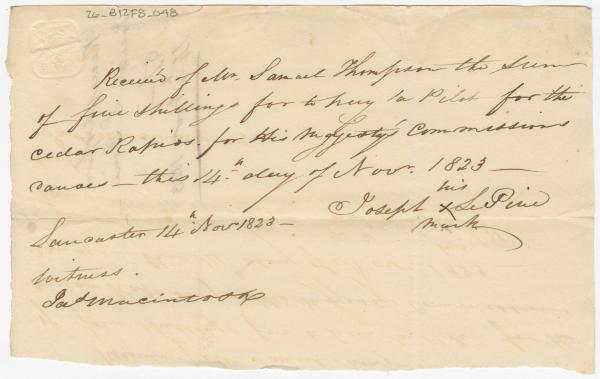 26_B12F8_048
Receiv'd of Mr. Samuel Thompson the Sum
of five shillings for to pay a Pilot for the
cedar Rapids. for His Majesty's Commissions
canoes — this 14th day of Novr. 1823 —
his
Joseph x Le Pine
mark
Lancaster 14th Novr 1823 —
Witness.
Jas Macintosh